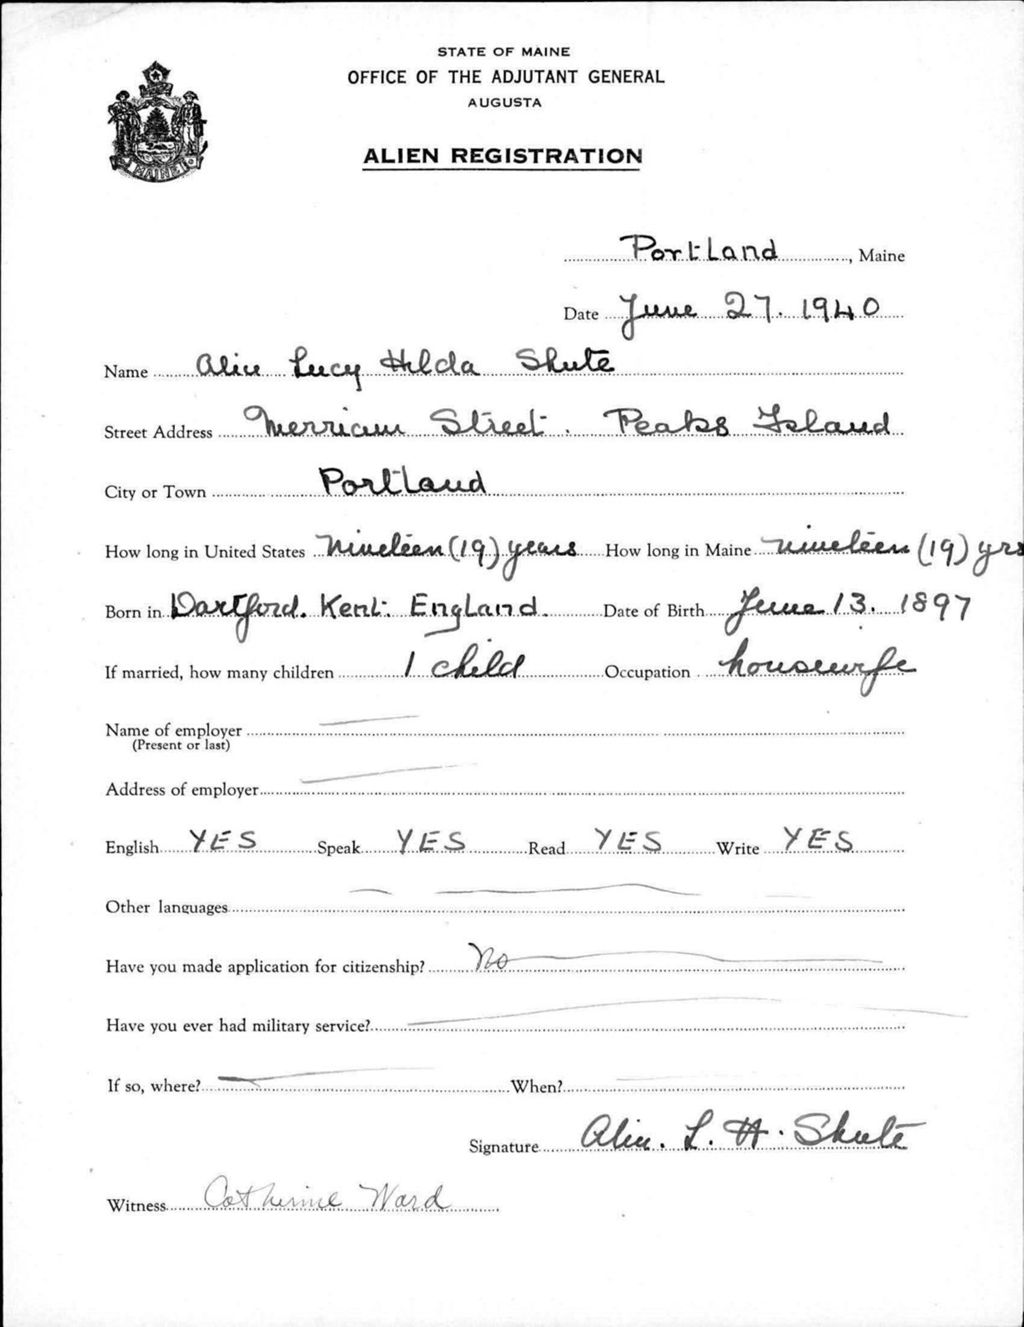 STATE OF MAINE
OFFICE OF THE ADJUTANT GENERAL
AUGUSTA
ALIEN REGISTRATION
MAINE
Portland, Maine
Date June 27. 1940
Name Alice Lucy Hilda Shute
Street Address Merriam Street. Peaks Island
City or Town Portland
How long in United States Nineteen (19) years How long in Maine nineteen (19) yrs
Born in Dartford. Kent. England. Date of Birth June 13. 1897
If married, how many children 1 child Occupation housewife
Name of employer
(Present or last)
Address of employer
English YES Speak YES Read YES Write YES
Other languages
Have you made application for citizenship? No
Have you ever had military service?
If so, where? When?
Signature Alice. L. H. Shute
Witness Catherine Ward